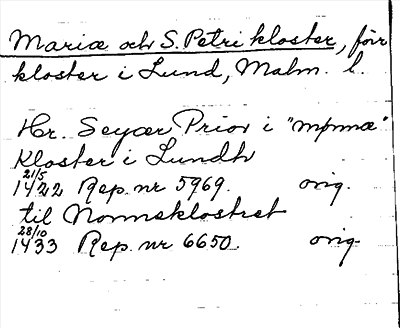 Mariæ och S. Petri kloster, förr
kloster i Lund, Malm. l.
Hr. Seyær Prior i "mpmæ"
Kloster i Lundh
21/5
1422 Rep. nr 5969. orig.
til Nonneklostret
28/10
1433 Rep. nr 6650. orig.